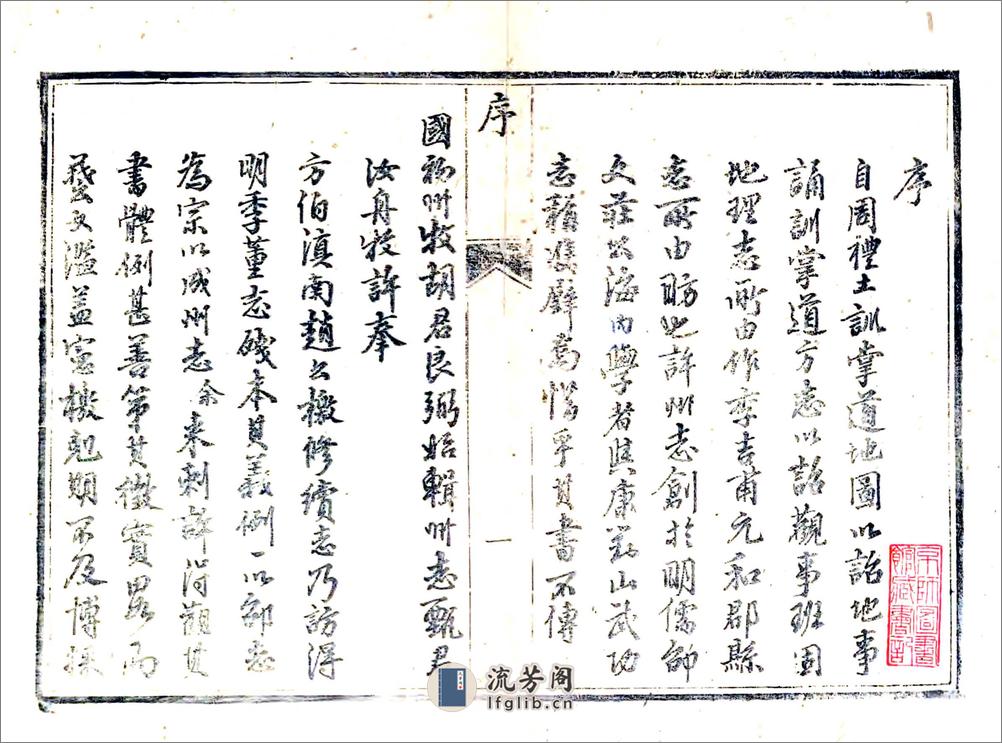 序
自周禮土訓掌道地圖以詔地事
誦訓掌道方志以詔觀事班固
地理志所由作李吉甫元和郡縣
志所由昉也許州志創於明儒邵
文莊公海內學者與康對山武功
志稱雙璧焉惜乎其書不傳
序
一
國初州牧胡君良弼始輯州志甄君
汝舟牧許奉
方伯滇南趙公檄修續志乃訪得
明季董志殘本其義例一以邵志
為宗以成州志余來刺許得觀其
書體例甚善第其徵實畧而
藝文濫蓋憲檄剋期不及博採
京師圖書館藏書記
流芳阁
lfglib.cn